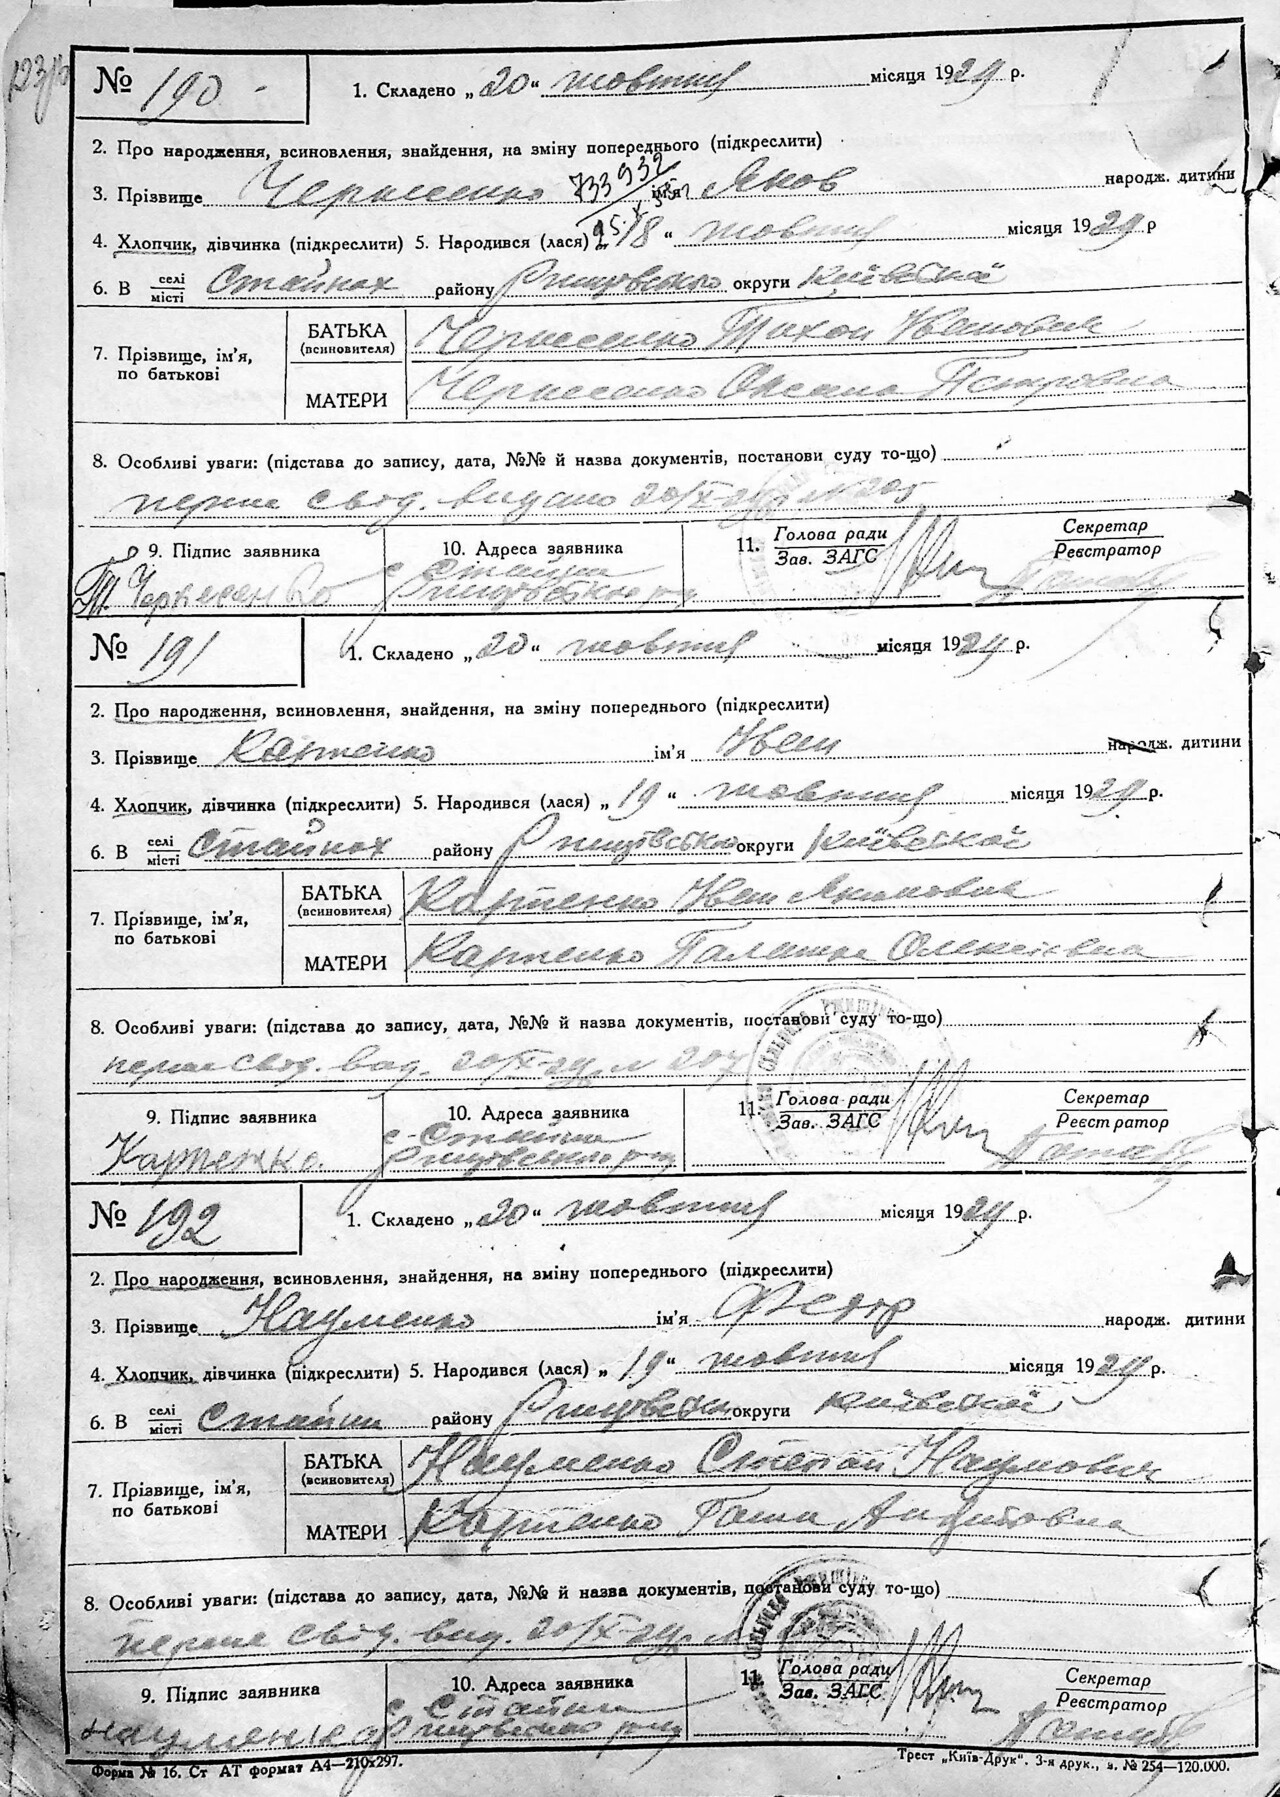 № 190 1. Складено „20“ жовтня місяця 1929 р.
2. Про народження, всиновлення, знайдення, на зміну попереднього (підкреслити)
733932
3. Прізвище Черкесенко ім'я Яков народж. дитини
4. Хлопчик, дівчинка (підкреслити) 5. Народився (лася) „18“ жовтня місяця 1929 р
6. В селі/місті Стайках району Ржищівського округи Київської
7. Прізвище, ім'я, по батькові
БАТЬКА (всиновителя) Черкесенко Тихон Иванович
МАТЕРИ Черкесенко Оксана Петровна
8. Особливі уваги: (підстава до запису, дата, №№ й назва документів, постанови суду то-що)
перше свід. видано 20/X-29 р № 205
9. Підпис заявника 10. Адреса заявника 11. Голова ради/Зав. ЗАГС Секретар/Реєстратор
Т. Черкесенко с. Стайки Ржищівського р-ну
№ 191 1. Складено „20“ жовтня місяця 1929 р.
2. Про народження, всиновлення, знайдення, на зміну попереднього (підкреслити)
3. Прізвище Карпенко ім'я Иван народж. дитини
4. Хлопчик, дівчинка (підкреслити) 5. Народився (лася) „19“ жовтня місяця 1929 р.
6. В селі/місті Стайках району Ржищівської округи Київської
7. Прізвище, ім'я, по батькові
БАТЬКА (всиновителя) Карпенко Иван
МАТЕРИ Карпенко Палашка Олексіевна
8. Особливі уваги: (підстава до запису, дата, №№ й назва документів, постанови суду то-що)
перше свід. вид. 20/X-29 р № 207
9. Підпис заявника 10. Адреса заявника 11. Голова ради/Зав. ЗАГС Секретар/Реєстратор
Карпенко. с. Стайки Ржищівського р-ну
№ 192 1. Складено „20“ жовтня місяця 1929 р.
2. Про народження, всиновлення, знайдення, на зміну попереднього (підкреслити)
3. Прізвище Науменко ім'я народж. дитини
4. Хлопчик, дівчинка (підкреслити) 5. Народився (лася) „19“ жовтня місяця 1929 р.
6. В селі/місті Стайки району округи Київської
7. Прізвище, ім'я, по батькові
БАТЬКА (всиновителя) Науменко Степан Наумович
МАТЕРИ Карпенко
8. Особливі уваги: (підстава до запису, дата, №№ й назва документів, постанови суду то-що)
перше свід. вид. 20/X-29 р №
9. Підпис заявника 10. Адреса заявника 11. Голова ради/Зав. ЗАГС Секретар/Реєстратор
науменко с. Стайки Ржищівського р-ну
Форма № 16. Ст АТ формат А4—210х297. Трест „Київ-Друк“. 3-я друк., з. № 254—120.000.